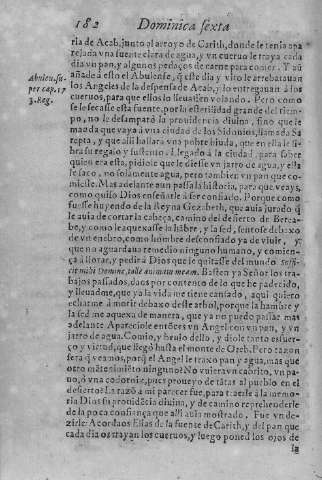 182 Dominica sexta
ria de Acab, junto al arroyo de Carith, donde le tenia apa
rejada vna fuente clara de agua, y vn cueruo le traya cada
dia vn pan, y algunos pedaços de carne para comer. Y aũ
Abulen. su-
per cap. 17
3. Reg.
añade a esto el Abulense, q̃ este dia y vito le arrebatauan
los Angeles de la despensa de Acab, y lo entregauan à los
cueruos, para que ellos lo lleuassen volando. Pero como
se secasse esta fuente, por la esterilidad grande del tiem-
po, no le desamparó la prouidencia diuina, sino que le
mãda que vaya à vna ciudad de los Sidonios, llamada Sa
repta, y que alli hallara vna pobre biuda, que en ella le li
bra su regalo y sustento. Llegado à la ciudad, para saber
quien era esta, pidiole que le diesse vn jarro de agua, y ella
le saco, no solamente agua, pero tambien vn pan que co-
miesse. Mas adelante aun passa la historia, para que veays,
como quiso Dios enseñarle à ser confiado. Porque como
fuesse huyendo de la Reyna Gezabeth, que auia jurado q̃
le auia de cortar la cabeça, camino del desierto de Bersa-
be, y como le aquexasse la hãbre, y la sed, sentose debaxo
de vn enebro, como hombre desconfiado ya de viuir, y
que no aguardaua remedio ninguno humano, y comien-
ça à llorar, y pedirà Dios que le quitasse del mundo. Suffi-
cit mihi Domine, tolle animam meam. Basten ya Señor los tra-
bajos passados, daos por contento de lo que he padecido,
y lleuadme, que ya la vida me tiene cansado, aqui quiero
echarme à morir debaxo desse arbol, porque la hambre y
la sed me aquexa de manera, que ya no puedo passar mas
adelante. Apareciole entõces vn Angel con vn pan, y vn
jarro de agua. Comio, y beuio dello, y diole tanto esfuer-
ço y virtud, que llegò hasta el monte de Oreb. Pero razon
sera q̃ veamos, porq̃ el Angel le traxo pan y agua, mas que
otro mãtenimiẽto ninguno? No vuiera vn cabrito, vn pa-
uo, ò vna codorniz, pues proueyo de tãtas al pueblo en el
desierto? La razõ à mi parecer fue, para traerle à la memo-
ria Dios su prouidẽcia diuina, y de camino reprehenderle
de la poca confiança que alli auia mostrado. Fue vn de-
zirle: Acordaos Elias de la fuente de Carith, y del pan que
cada dia os trayan los cueruos, y luego poned los ojos de
la